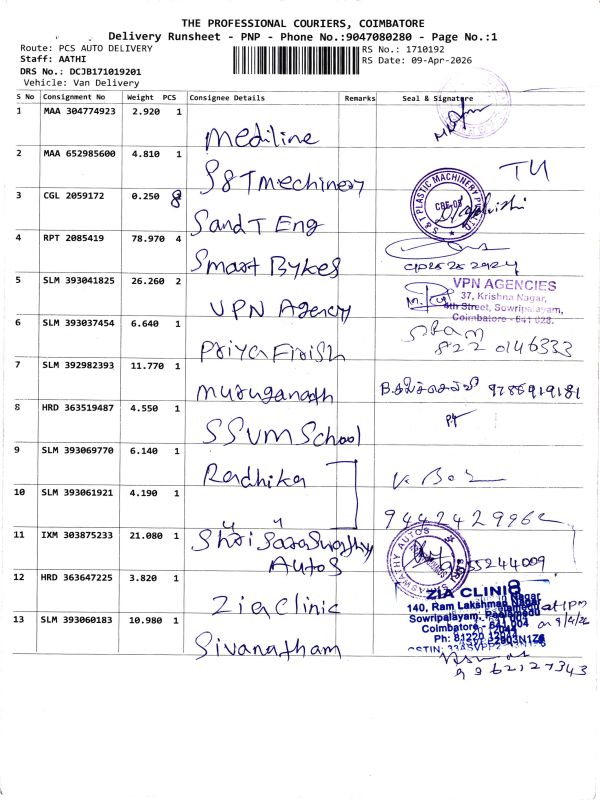 THE PROFESSIONAL COURIERS, COIMBATORE
Delivery Runsheet - PNP - Phone No.:9047080280 - Page No.:1
Route: PCS AUTO DELIVERY
RS No.: 1710192
Staff: AATHI
RS Date: 09-Apr-2026
DRS No.: DCJB171019201
Vehicle: Van Delivery
S No Consignment No Weight PCS Consignee Details Remarks Seal & Signature
1 MAA 304774923 2.920 1 Mediline
2 MAA 652985600 4.810 1 S&T Mechinery
3 CGL 2059172 0.250 8 Sand T Eng
S & T PLASTIC MACHINERY
CBE-08
4 RPT 2085419 78.970 4 Smart Bykes
5 SLM 393041825 26.260 2 VPN Agency
VPN AGENCIES
37, Krishna Nagar,
4th Street, Sowripalayam,
Coimbatore - 641 028.
6 SLM 393037454 6.640 1 Priya Finish
822 0146333
7 SLM 392982393 11.770 1 Muruganath
9786919181
8 HRD 363519487 4.550 1 SSVM School
9 SLM 393069770 6.140 1 Radhika
10 SLM 393061921 4.190 1
11 IXM 303875233 21.080 1 Shri Saraswathy
Autos
12 HRD 363647225 3.820 1 Zia Clinic
ZIA CLINIC
140, Ram Lakshman Nagar
Sowripalayam,
Coimbatore - 641 004
Ph: 81220 12044
13 SLM 393060183 10.980 1 Sivanatham
9362127343